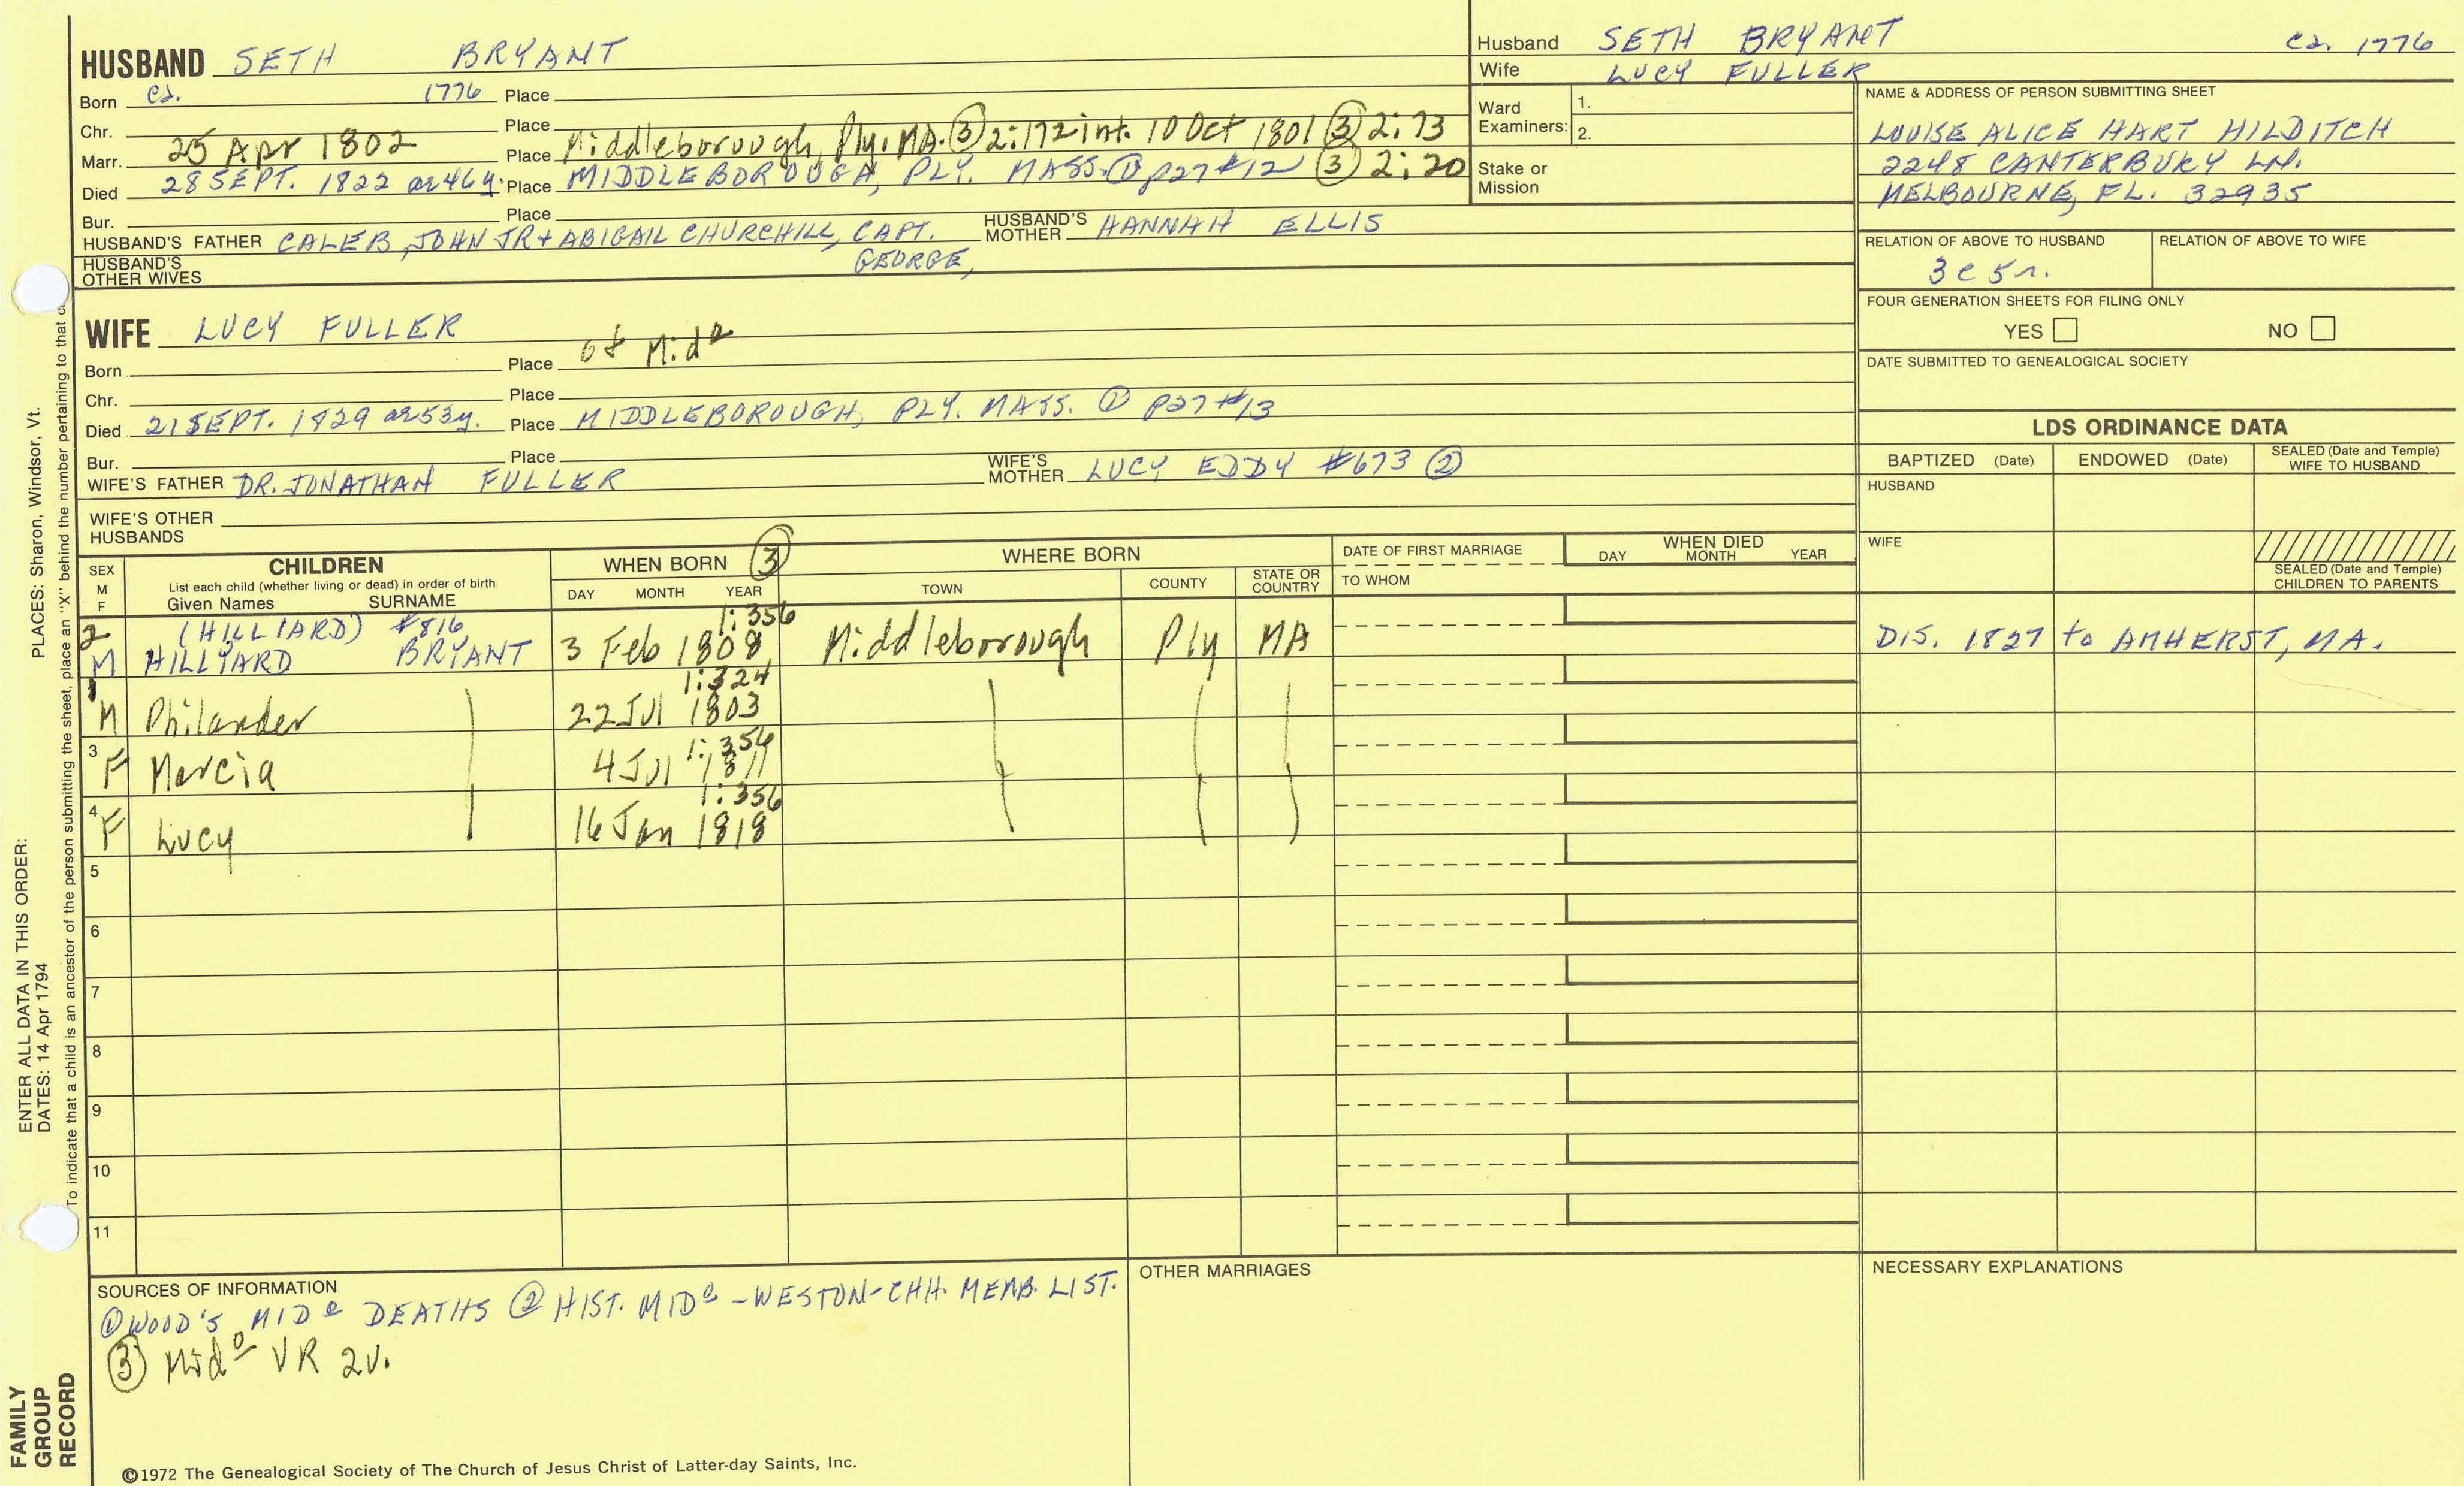 HUSBAND SETH BRYANT
Born ca. 1776 Place
Chr. Place
Marr. 25 Apr 1802 Place Middleborough, Ply. MA. ③ 2:172 int. 10 Oct 1801 ③ 2:73
Died 28 SEPT. 1822 ae 46y. Place MIDDLEBOROUGH, PLY. MASS. ① p27 #12 ③ 2:20
Bur. Place
HUSBAND'S FATHER CALEB, JOHN JR + ABIGAIL CHURCHILL, CAPT. GEORGE, HUSBAND'S MOTHER HANNAH ELLIS
HUSBAND'S OTHER WIVES
Husband SETH BRYANT ca. 1776
Wife LUCY FULLER
Ward Examiners: 1.
2.
Stake or Mission
NAME & ADDRESS OF PERSON SUBMITTING SHEET
LOUISE ALICE HART HILDITCH
2248 CANTERBURY LN.
MELBOURNE, FL. 32935
RELATION OF ABOVE TO HUSBAND RELATION OF ABOVE TO WIFE
3c 5r.
FOUR GENERATION SHEETS FOR FILING ONLY
YES NO
DATE SUBMITTED TO GENEALOGICAL SOCIETY
WIFE LUCY FULLER
Born Place of Midº
Chr. Place
Died 21 SEPT. 1829 ae 53y. Place MIDDLEBOROUGH, PLY. MASS. ① p27 #13
Bur. Place
WIFE'S FATHER DR. JONATHAN FULLER WIFE'S MOTHER LUCY EDDY #673 ②
WIFE'S OTHER HUSBANDS
LDS ORDINANCE DATA
BAPTIZED (Date) ENDOWED (Date) SEALED (Date and Temple) WIFE TO HUSBAND
HUSBAND
WIFE
SEALED (Date and Temple) CHILDREN TO PARENTS
SEX M F
CHILDREN
List each child (whether living or dead) in order of birth
Given Names SURNAME
WHEN BORN ③
DAY MONTH YEAR
WHERE BORN
TOWN COUNTY STATE OR COUNTRY
DATE OF FIRST MARRIAGE
TO WHOM
WHEN DIED
DAY MONTH YEAR
2 (HILLIARD) #816 1:356
M HILLYARD BRYANT 3 Feb 1808 Middleborough Ply MA DIS. 1827 to AMHERST, MA.
1 1:324
M Philander 22 Jul 1803
3 1:356
F Marcia 4 Jul 1811
4 1:356
F Lucy 16 Jan 1818
5
6
7
8
9
10
11
SOURCES OF INFORMATION
① WOOD'S MIDº DEATHS ② HIST. MIDº - WESTON - CHH. MEMB. LIST.
③ Midº VR 2v.
OTHER MARRIAGES
NECESSARY EXPLANATIONS
©1972 The Genealogical Society of The Church of Jesus Christ of Latter-day Saints, Inc.
ENTER ALL DATA IN THIS ORDER:
DATES: 14 Apr 1794 PLACES: Sharon, Windsor, Vt.
To indicate that a child is an ancestor of the person submitting the sheet, place an "X" behind the number pertaining to that
FAMILY
GROUP
RECORD